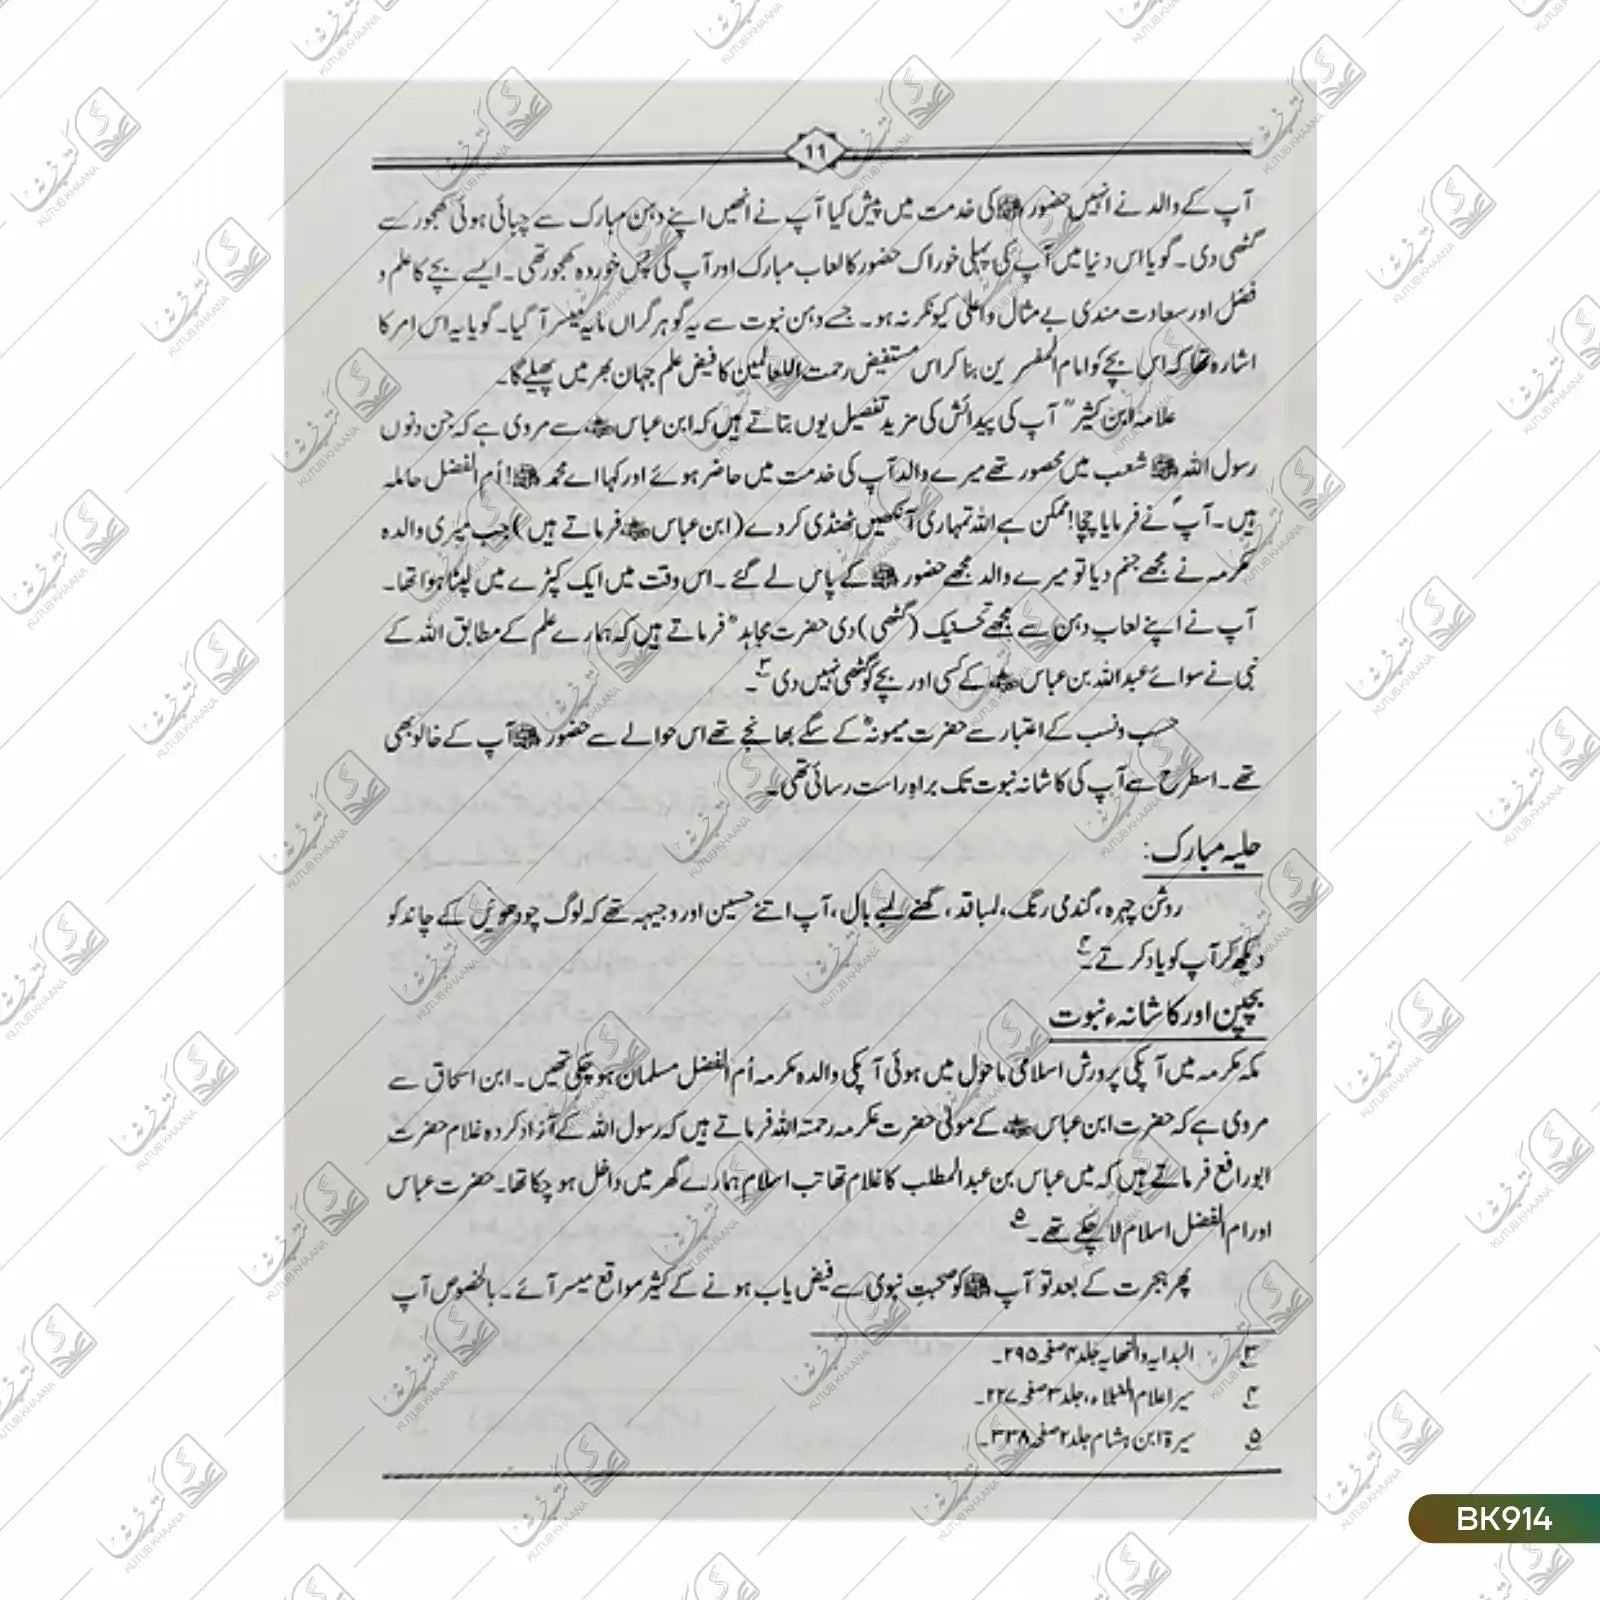 ۱۱
آپ کے والد نے انہیں حضور ﷺ کی خدمت میں پیش کیا آپ نے انھیں اپنے دہن مبارک سے چبائی ہوئی کھجور سے
گٹھی دی۔ گویا اس دنیا میں آپ کی پہلی خوراک حضور کا لعاب مبارک اور آپ کی پس خوردہ کھجور تھی۔ ایسے بچے کا علم و
فضل اور سعادت مندی بے مثال و اعلیٰ کیونکر نہ ہو۔ جسے دہن نبوت سے یہ گوہر گراں مایہ میسر آ گیا۔ گویا یہ اس امر کا
اشارہ تھا کہ اس بچے کو امام المفسرین بنا کر اس مستفیض رحمت اللعالمین کا فیض علم جہان بھر میں پھیلے گا۔
علامہ ابن کثیرؒ آپ کی پیدائش کی مزید تفصیل یوں بتاتے ہیں کہ ابن عباس ؓ سے مروی ہے کہ جن دنوں
رسول اللہ ﷺ شعب میں محصور تھے میرے والد آپ کی خدمت میں حاضر ہوئے اور کہا اے محمد ﷺ! اُم الفضل حاملہ
ہیں۔ آپؐ نے فرمایا چچا! ممکن ہے اللہ تمہاری آنکھیں ٹھنڈی کر دے (ابن عباس ؓ فرماتے ہیں) جب میری والدہ
مکرمہ نے مجھے جنم دیا تو میرے والد مجھے حضور ﷺ کے پاس لے گئے۔ اس وقت میں ایک کپڑے میں لپٹا ہوا تھا۔
آپ نے اپنے لعاب دہن سے مجھے تحسنیک (گٹھی) دی حضرت مجاہدؒ فرماتے ہیں کہ ہمارے علم کے مطابق اللہ کے
نبی نے سوائے عبداللہ بن عباس ؓ کے کسی اور بچے کو گٹھی نہیں دی ۳۔
حسب و نسب کے اعتبار سے حضرت میمونہؓ کے سگے بھانجے تھے اس حوالے سے حضور ﷺ آپ کے خالو بھی
تھے۔ اسطرح سے آپ کی کاشانہ نبوت تک براہِ راست رسائی تھی۔
حلیہ مبارک:
روشن چہرہ، گندمی رنگ، لمبا قد، گھنے لمبے بال، آپ اتنے حسین اور وجیہہ تھے کہ لوگ چودھویں کے چاند کو
دیکھ کر آپ کو یاد کرتے۔۴
بچپن اور کاشانہء نبوت
مکہ مکرمہ میں آپکی پرورش اسلامی ماحول میں ہوئی آپکی والدہ مکرمہ اُم الفضل مسلمان ہو چکی تھیں۔ ابن اسحاق سے
مروی ہے کہ حضرت ابن عباس ؓ کے مولیٰ حضرت عکرمہ رحمتہ اللہ فرماتے ہیں کہ رسول اللہ کے آزاد کردہ غلام حضرت
ابو رافع فرماتے ہیں کہ میں عباس بن عبدالمطلب کا غلام تھا تب اسلام ہمارے گھر میں داخل ہو چکا تھا۔ حضرت عباس
اور ام الفضل اسلام لا چکے تھے۔۵
پھر ہجرت کے بعد تو آپ ﷺ کو صحبتِ نبوی سے فیض یاب ہونے کے کثیر مواقع میسر آئے۔ بالخصوص آپ
۳ البدایہ والنھایہ جلد ۴ صفحہ ۲۹۵۔
۴ سیر اعلام النبلاء، جلد ۳ صفحہ ۲۲۷۔
۵ سیرۃ ابن ہشام جلد ۲ صفحہ ۳۳۸۔
BK914
کتب خانہ
KUTUB KHAANA